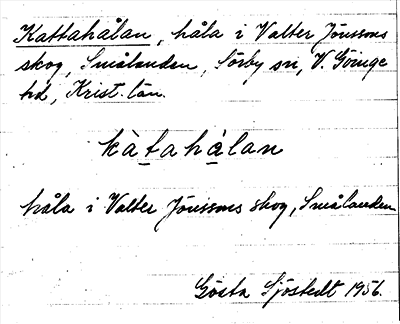 Kattahålan, håla i Valter Jönssons
skog, Smålanden, Sörby sn, V. Göinge
hd, Krist. län.
kàtahàlan
håla i Valter Jönssons skog, Smålanden
Gösta Sjöstedt 1956.